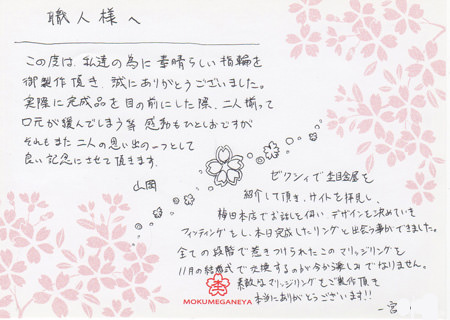 職人様へ
この度は、私達の為に素晴らしい指輪を
御製作頂き、誠にありがとうございました。
実際に完成品を目の前にした際、二人揃って
口元が緩んでしまう等 感動もひとしおですが
それもまた二人の思い出の一つとして
良い記念にさせて頂きます。
山岡
ゼクシィで杢目金屋を
紹介して頂き、サイトを拝見し、
梅田本店でお話しを伺い、デザインを決めていき
フィッティングをし、本日完成したリングと出会う事ができました。
全ての段階で惹きつけられたこのマリッジリングを
11月の結婚式で交換するのが今から楽しみでなりません。
素敵なマリッジリングをご製作頂き
本当にありがとうございます!!
MOKUMEGANEYA
一宮